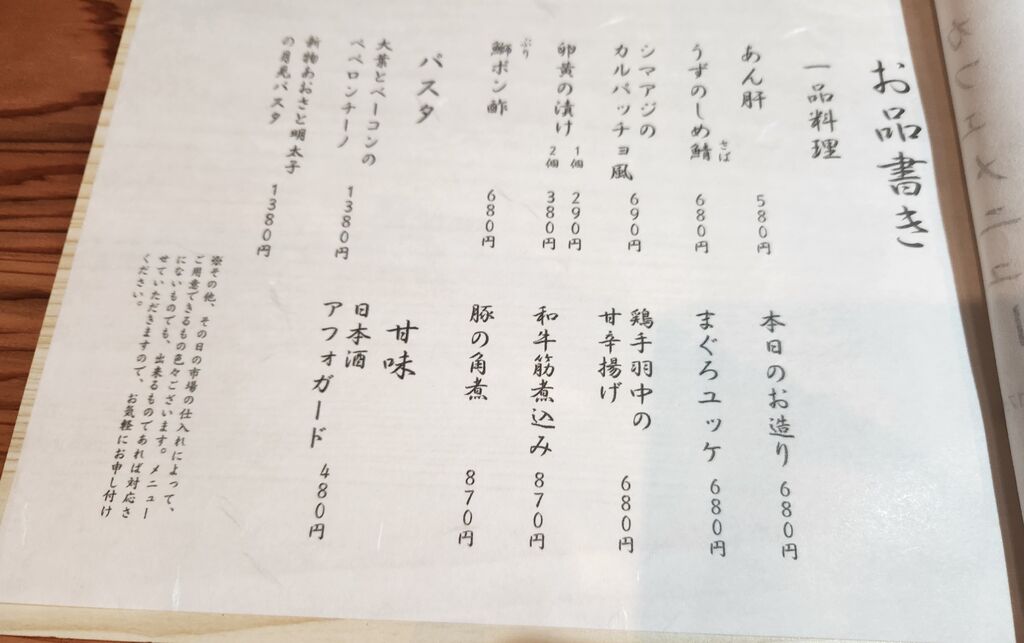 お品書き
一品料理
あん肝 580円
うずのしめ鯖 680円
さば
シマアジの
カルパッチョ風 690円
卵黄の漬け 1個 290円
2個 380円
鰤ポン酢 680円
ぶり
パスタ
大葉とベーコンの
ペペロンチーノ 1380円
新物あおさと明太子
の月見パスタ 1380円
本日のお造り 680円
まぐろユッケ 680円
鶏手羽中の
甘辛揚げ 680円
和牛筋煮込み 870円
豚の角煮 870円
甘味
日本酒
アフォガード 480円
※その他、その日の市場の仕入れによって、
ご用意できるもの色々ございます。メニュー
にないものでも、出来るものであれば対応さ
せていただきますので、お気軽にお申し付け
ください。